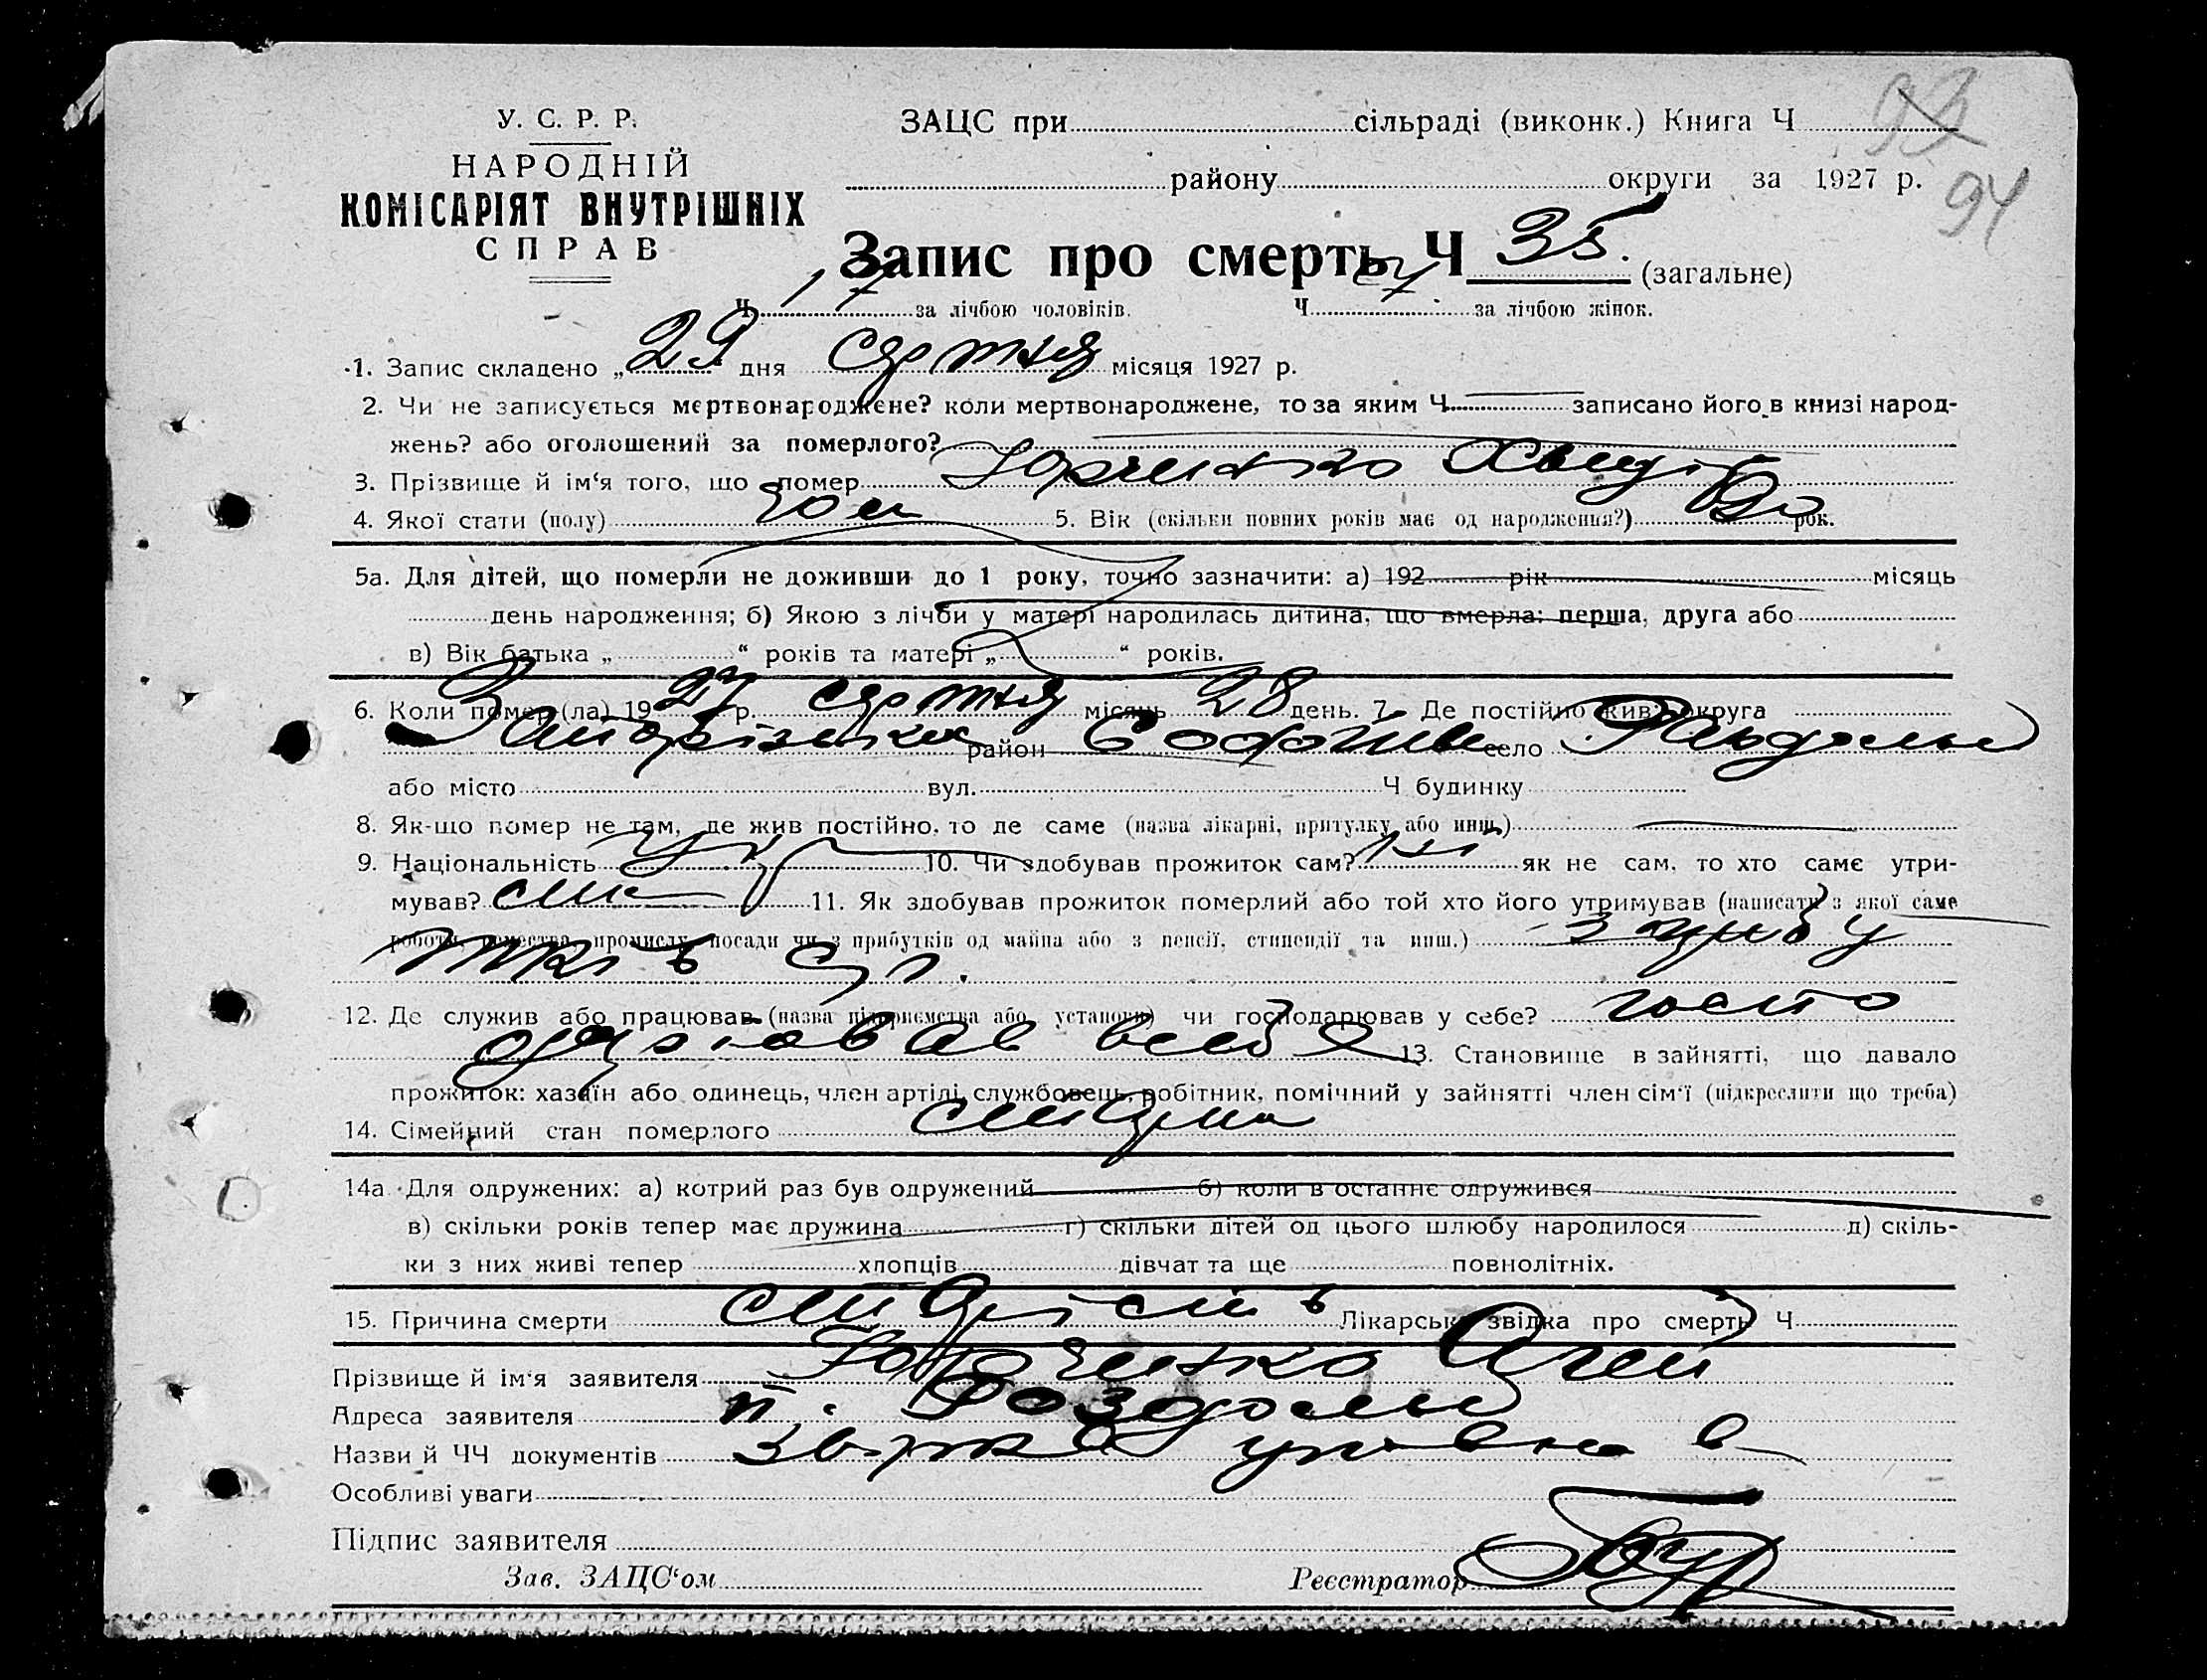 У. С. Р. Р.
НАРОДНІЙ
КОМІСАРІЯТ ВНУТРІШНІХ
СПРАВ
ЗАЦС при сільраді (виконк.) Книга Ч 93
району округи за 1927 р. 94
Запис про смерть Ч 35. (загальне)
Ч 17 за лічбою чоловіків. Ч за лічбою жінок.
1. Запис складено „29" дня серпня місяця 1927 р.
2. Чи не записується мертвонароджене? коли мертвонароджене, то за яким Ч записано його в книзі народ-
жень? або оголошений за померлого?
3. Прізвище й ім‘я того, що помер
4. Якої стати (полу) 5. Вік (скільки повних років має од народження?) рок.
5а. Для дітей, що померли не доживши до 1 року, точно зазначити: а) 192 рік місяць
день народження; б) Якою з лічби у матері народилась дитина, що вмерла: перша, друга або
в) Вік батька „ “ років та матері „ “ років.
6. Коли помер (ла) 1927 р. серпня місяць 28 день. 7. Де постійно жив: округа
Запорізька район село
або місто вул. Ч будинку
8. Як-що помер не там, де жив постійно, то де саме (назва лікарні, притулку або инш.)
9. Національність Укр 10. Чи здобував прожиток сам? як не сам, то хто саме утри-
мував? син 11. Як здобував прожиток померлий або той хто його утримував (написати з якої саме
роботи, ремества, промислу, посади чи з прибутків од майна або з пенсії, стипендії та инш.) з прибу
тків с г.
12. Де служив або працював (назва підприємства або установи) чи господарював у себе? госпо
дарював всебе 13. Становище в зайнятті, що давало
прожиток: хазяїн або одинець, член артілі, службовець, робітник, помічний у зайнятті член сім‘ї (підкреслити що треба)
14. Сімейний стан померлого
14а Для одружених: а) котрий раз був одружений б) коли в останнє одружився
в) скільки років тепер має дружина г) скільки дітей од цього шлюбу народилося д) скіль-
ки з них живі тепер хлопців дівчат та ще повнолітніх.
15. Причина смерти старість Лікарська звідка про смерть Ч
Прізвище й ім‘я заявителя
Адреса заявителя п. Роздолье
Назви й ЧЧ документів
Особливі уваги
Підпис заявителя
Зав. ЗАЦС‘ом Реєстратор